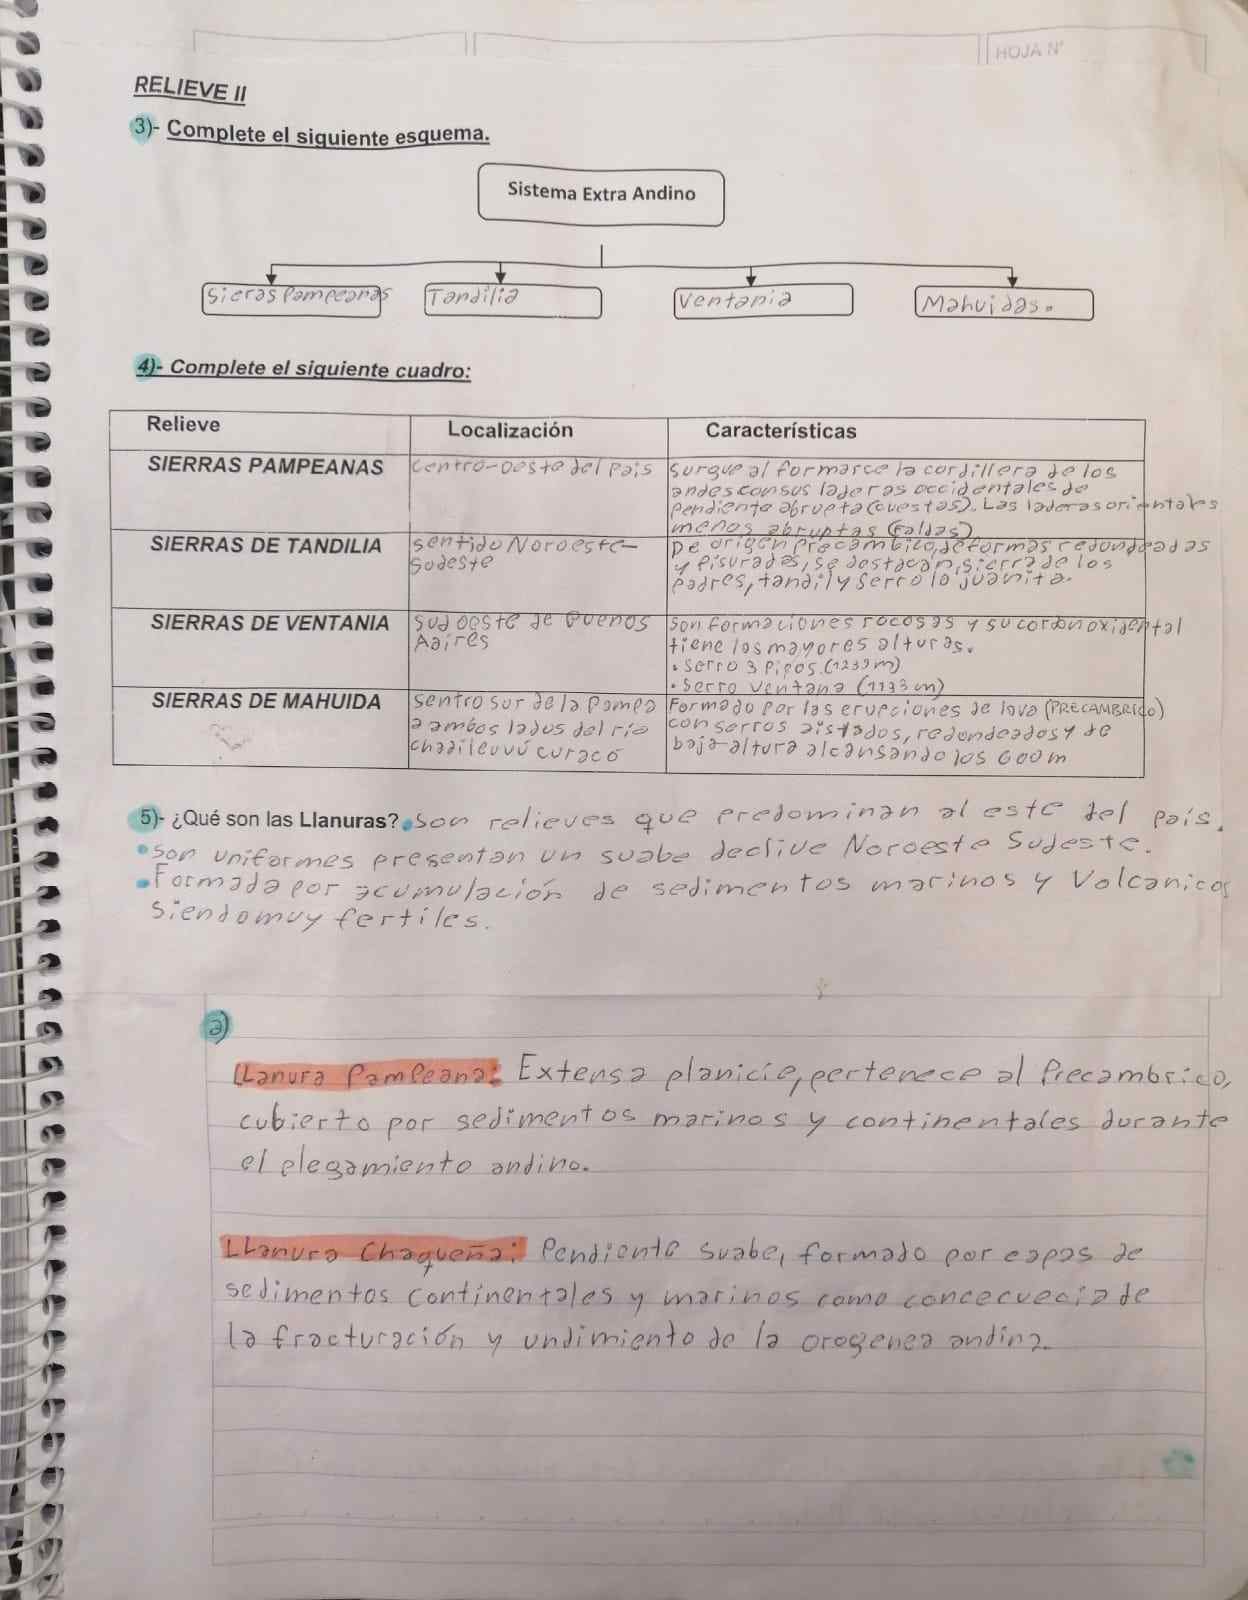 HOJA N°
RELIEVE II
3)- Complete el siguiente esquema.
Sistema Extra Andino
Sieras Pampeanas
Tandilia
Ventania
Mahuidas.
4)- Complete el siguiente cuadro:
Relieve
Localización
Características
SIERRAS PAMPEANAS
Centro-oeste del Pais
Surgue al formarce la cordillera de los
andes con sus laderas occidentales de
Pendiente abrupta (cuestas). Las laderas orientales
menos abruptas (Faldas)
SIERRAS DE TANDILIA
sentido Noroeste-
Sudeste
De origen Precambico, de formas redondeadas
y fisurades, se destacan, sierra de los
padres, tandil y Serro la juanita.
SIERRAS DE VENTANIA
Sudoeste de Buenos
Aaires
Son formaciones rocosas y su cordon oxidental
tiene los mayores alturas.
• Serro 3 Picos. (1239m)
• Serro Ventana (1133 m)
SIERRAS DE MAHUIDA
Sentro sur de la Pampa
a ambos lados del río
chadileuvú curacó
Formado Por las erupciones de lava (PRECAMBRICO)
con serros aislados, redondeados y de
baja altura alcansando los 600m
5)- ¿Qué son las Llanuras? • Son relieves que predominan al este del país.
• Son uniformes presentan un suabe declive Noroeste Sudeste.
• Formada por acumulación de sedimentos marinos y Volcanicos
siendo muy fertiles.
a)
LLanura Pampeana: Extensa planicie, pertenece al Precambrico,
cubierto por sedimentos marinos y continentales durante
el plegamiento andino.
LLanura Chaqueña: Pendiente Suabe, formado por capas de
sedimentos continentales y marinos como concecuecia de
la fracturación y undimiento de la orogenea andina.